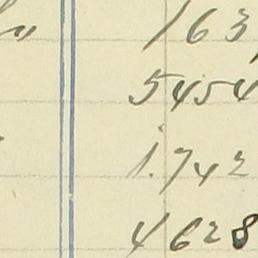 163
5454
1.742
4628